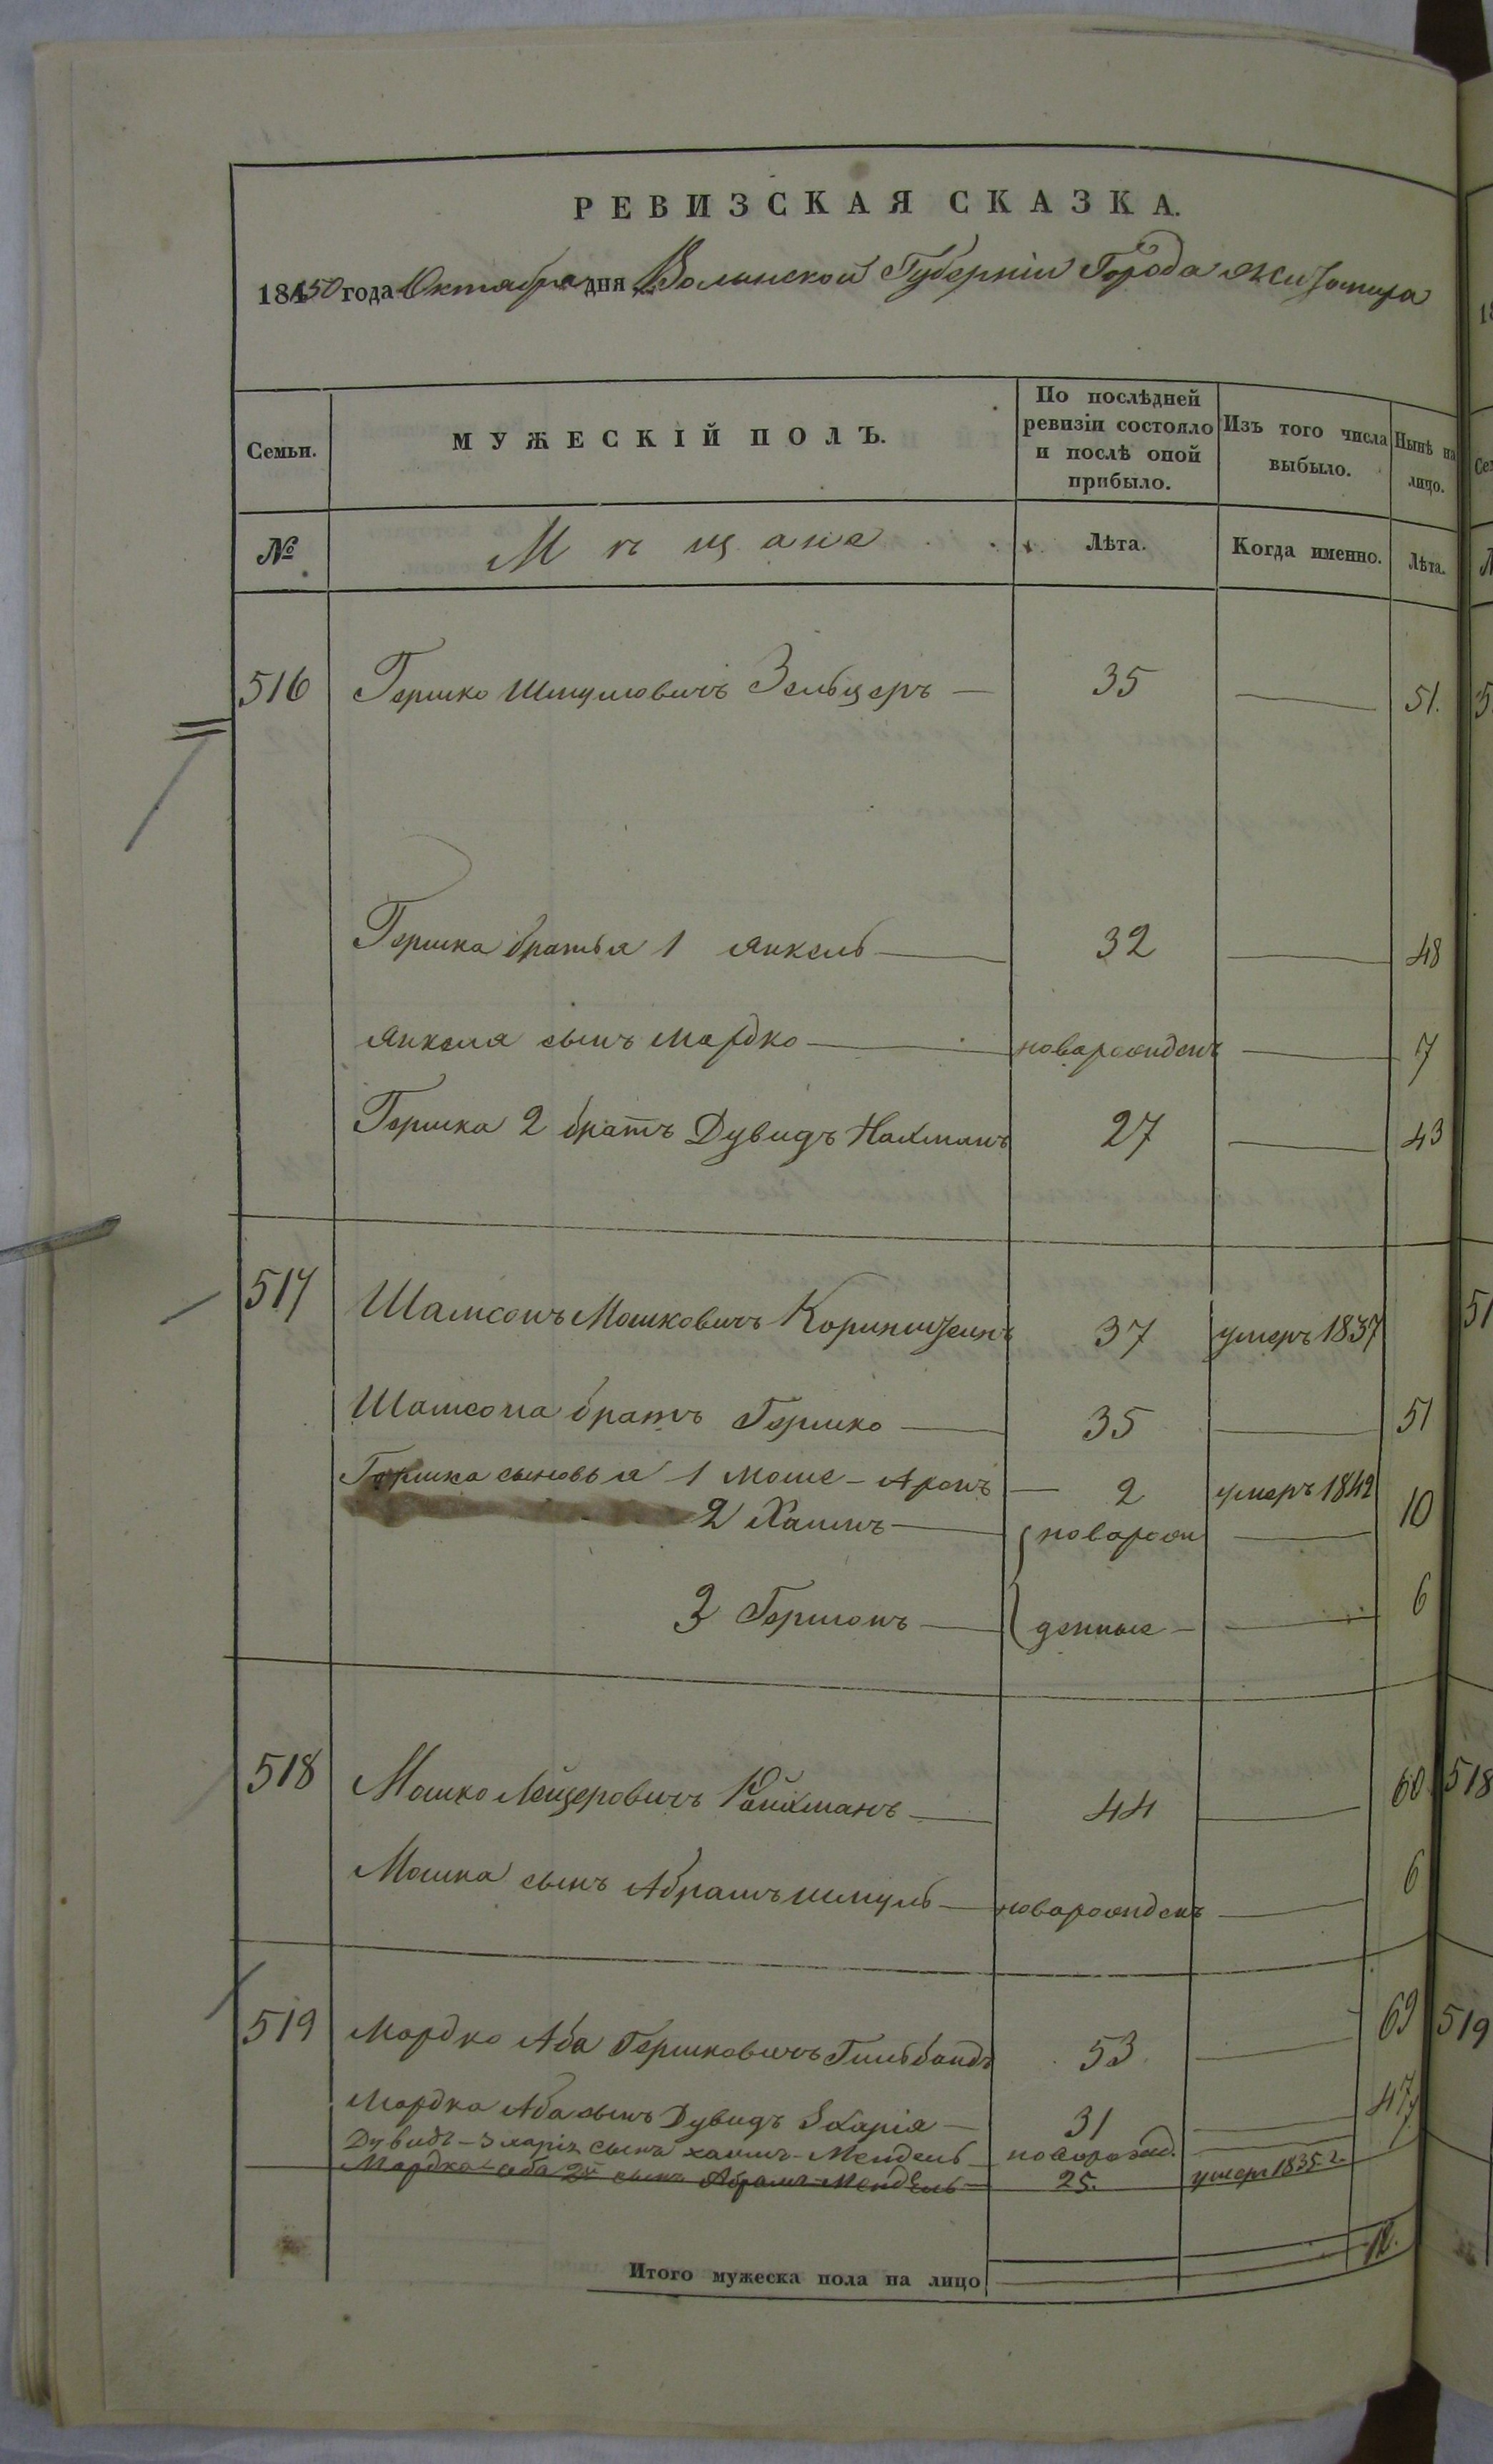 РЕВИЗСКАЯ СКАЗКА.
1850 года Октября дня Волынской Губерніи Города Житомира
Семьи. МУЖЕСКІЙ ПОЛЪ. По послѣдней ревизіи состояло и послѣ оной прибыло. Изъ того числа выбыло. Нынѣ на лицо.
№ Мѣщане Лѣта. Когда именно. Лѣта.
516 Гершко Шмулевичъ Зельцеръ — 35 — 51.
Гершка братья 1 Янкель — 32 — 48
Янкеля сынъ Мордко — новорожденъ — 7
Гершка 2 братъ Дувидъ Нахманъ 27 — 43
517 Шамсонъ Мошковичъ 37 умеръ 1837
Шамсона братъ Гершко — 35 — 51
Гершка сыновья 1 Моше-Аронъ — 2 умеръ 1842
2 Хаимъ — новорож — 10
3 Гершонъ — денные — 6
518 Мошко Лейзеровичъ Ройхманъ — 44 — 60
Мошка сынъ Абрамъ Шмуль — новорожденъ — 6
519 Мордко Аба Гершковичъ Гильбандъ 53 — 69
Мордка Аба сынъ Дувидъ Зхарія — 31 — 47
Дувидъ-Зхарія сынъ Хаимъ-Мендель — новорожд. — 7
Мордко-Аба 2й сынъ Абрамъ-Мендель — 25. умеръ 1835 г.
Итого мужеска пола на лицо 12.
518
519